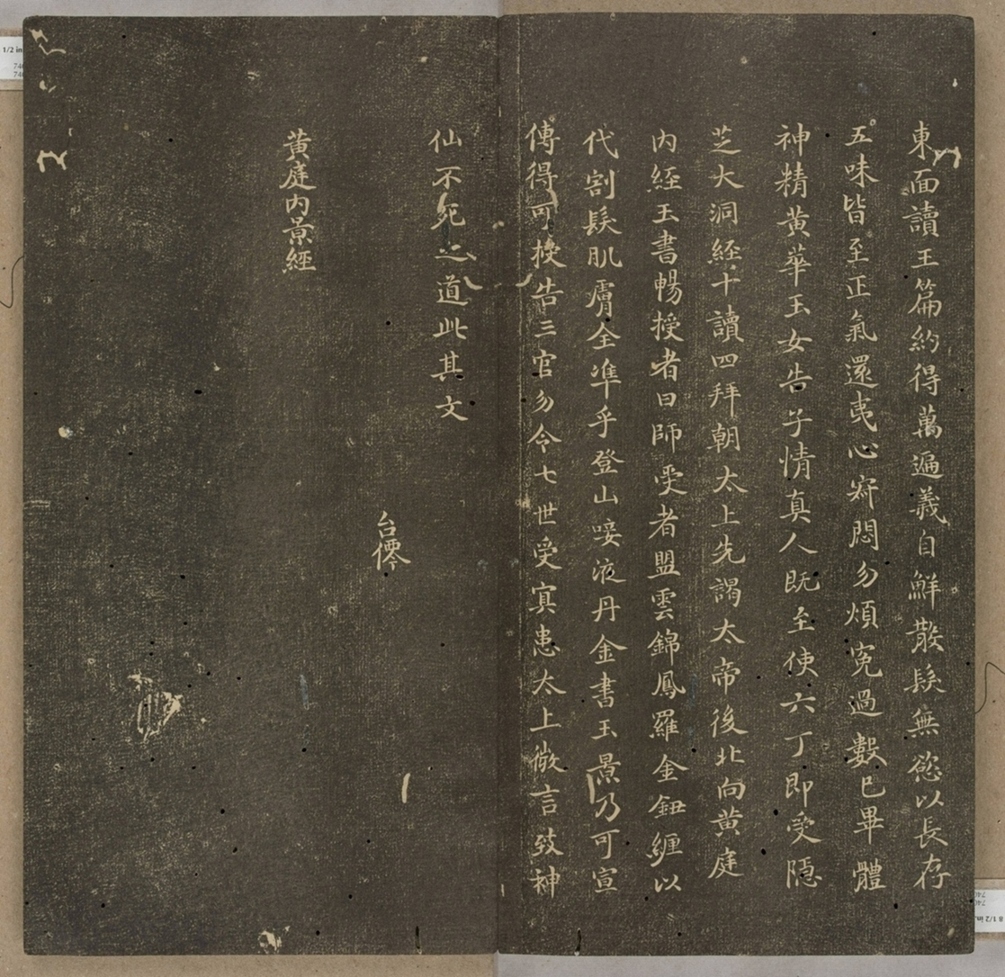 東面讀玉篇約得萬遍義自鮮散髮無慾以長存
五味皆至正氣還夷心寂悶勿煩冤過數已畢體
神精黃華玉女告子情真人既至使六丁即受隱
芝大洞經十讀四拜朝太上先謁太帝後北向黃庭
內經玉書暢授者曰師受者盟雲錦鳳羅金鈕纏以
代割髮肌膚全準乎登山唼液丹金書玉景乃可宣
傳得可授告三官勿令七世受冥患太上微言致神
仙不死之道此其文
台僊
黃庭內景經
1/2 in